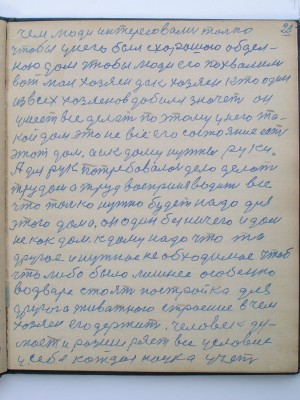 28
чем люди интересовали только
чтобы у него был с хорошою отдел-
кою дом чтобы люди его похвалили
вот мол хозяин дак хозяин кто один
из всех хозяинов добился значет он
умеет все делат по этому у него та-
кой дом это не всё его состояние ест
этот дом, а ик дому нужны руки.
А для рук потребовалос дело делат
трудом а труд воспраизводит все
что только нужно будет надо для
этого дома. он один без ничего и дом
не как дом. к дому надо что то
другое и нужное необходимае чтоб
что либо было лишнее особенно
во дваре стоят постройка для
другога живатного строение в чем
хозяин его держит. Человек ду-
мает и розширяет все условие
у себе каждая наука учет